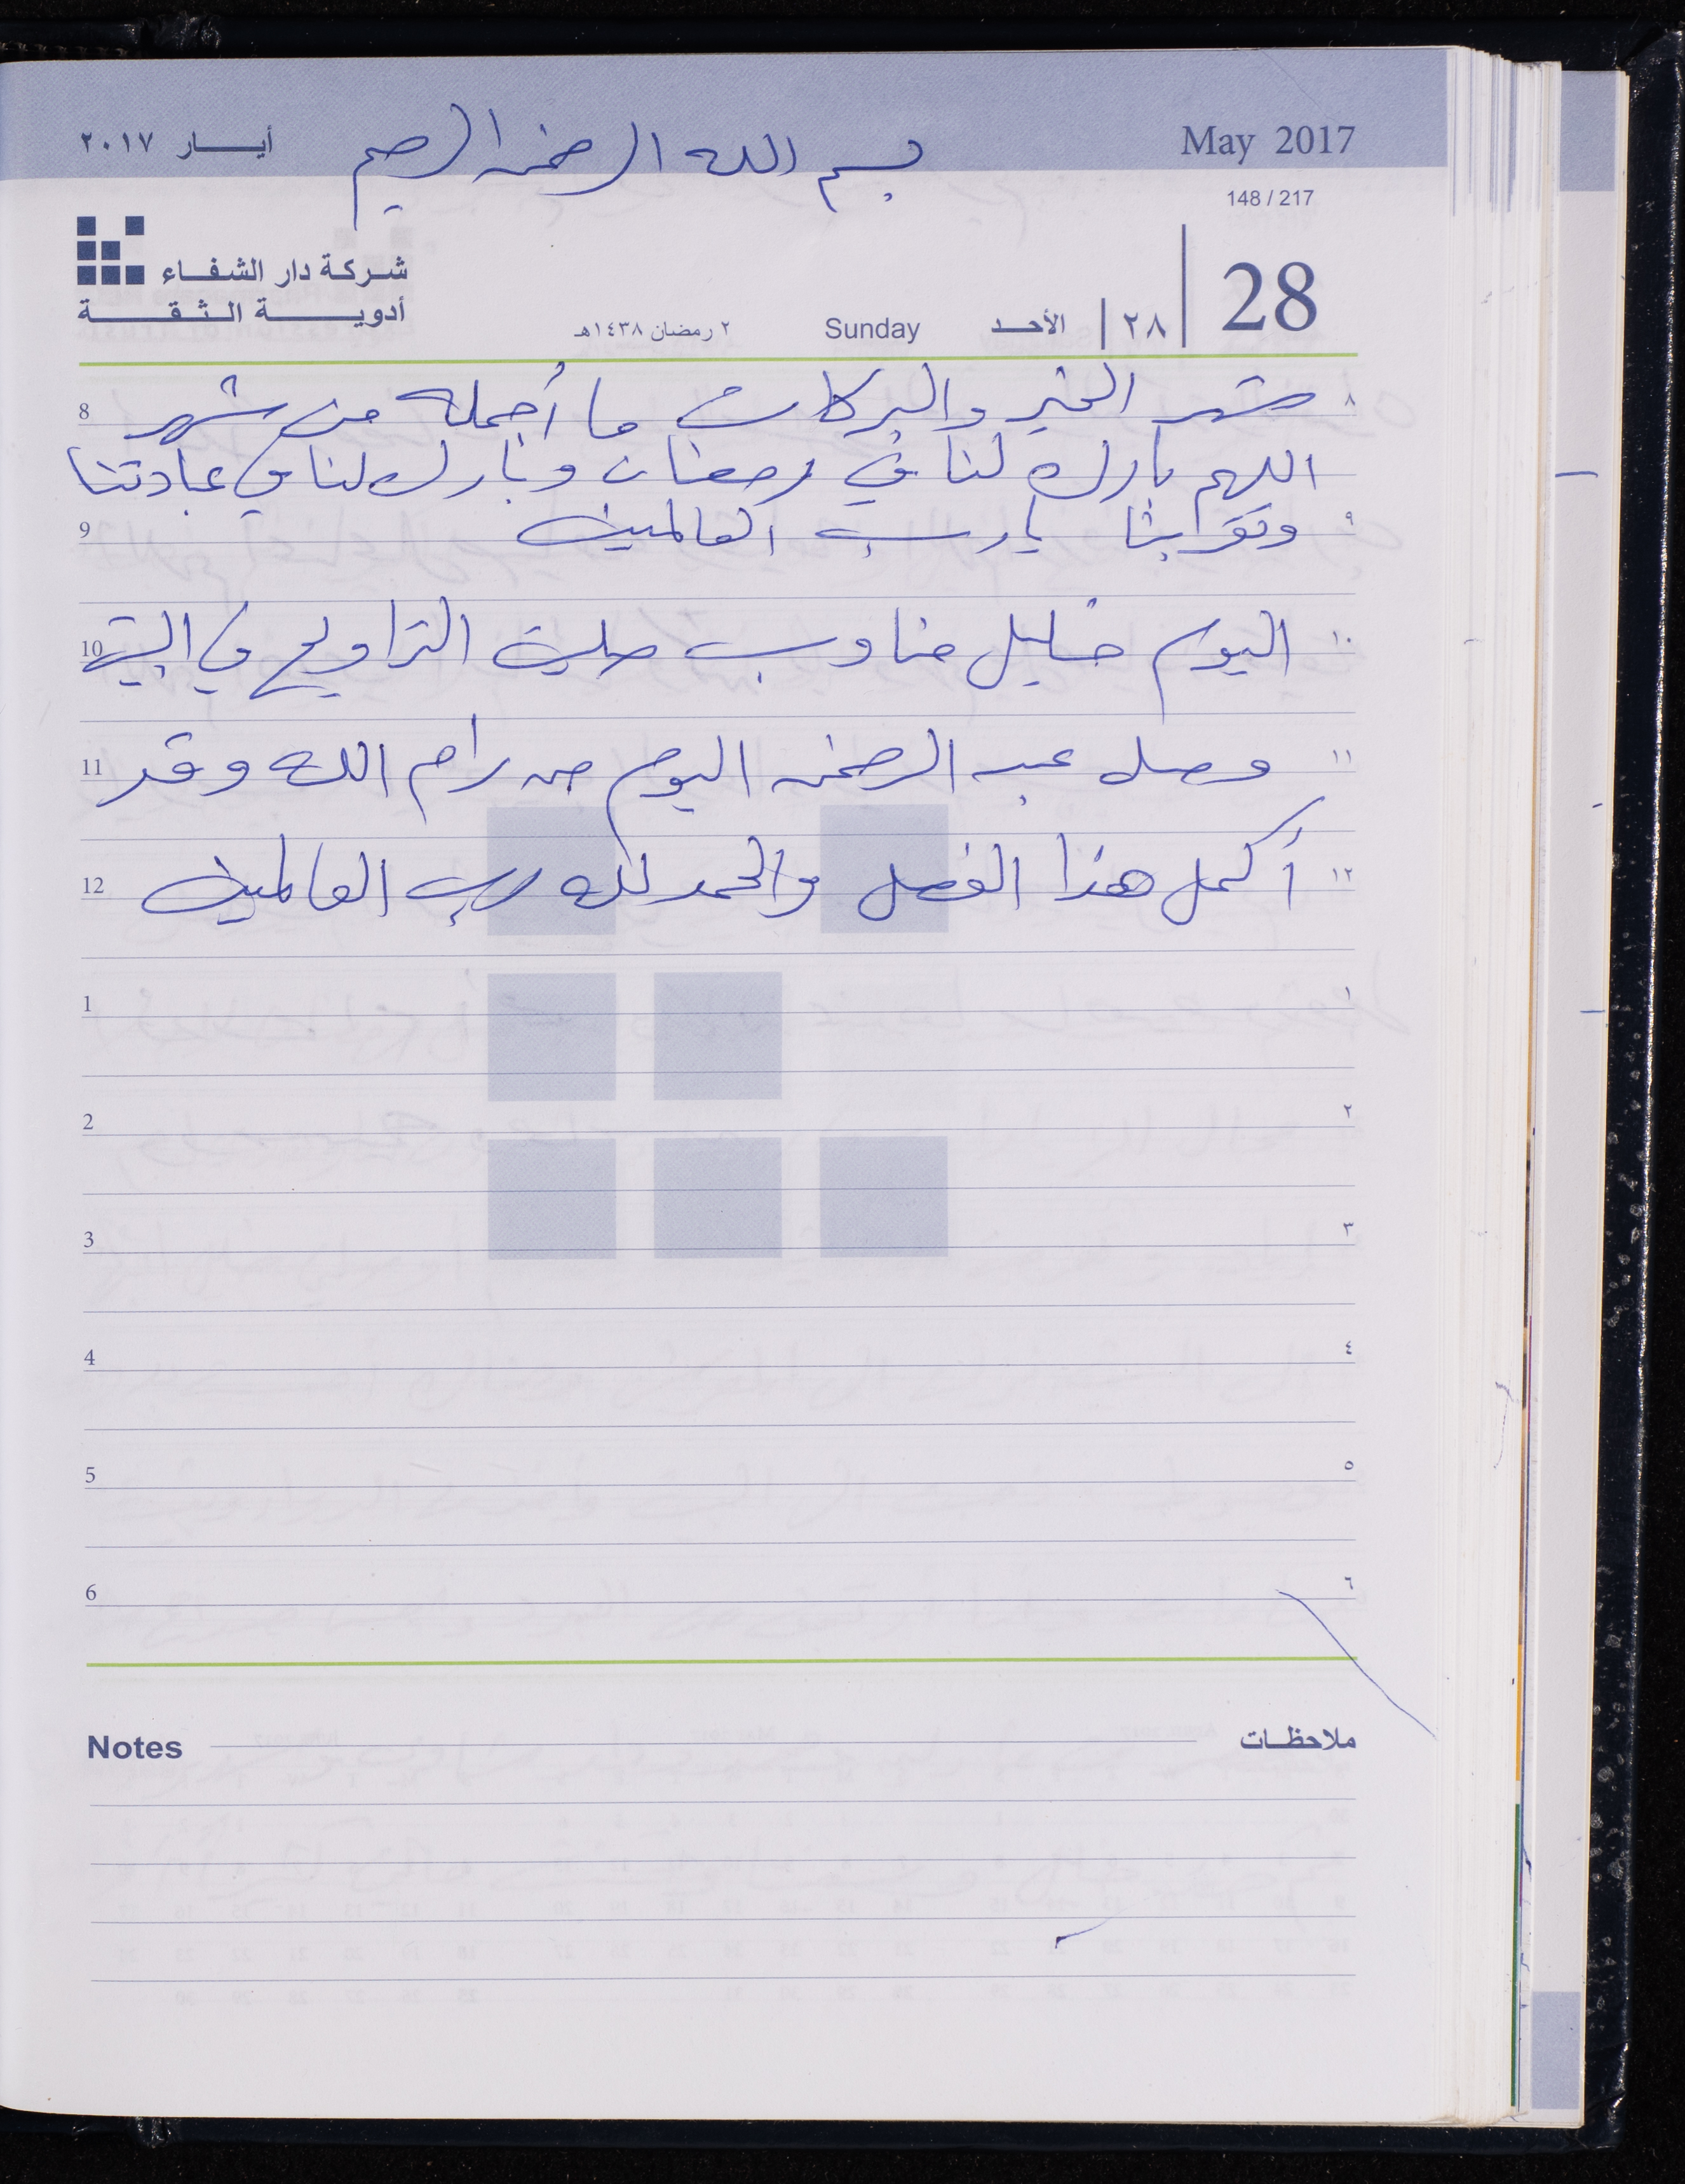 أيـــار ٢٠١٧
بسم الله الرحمن الرحيم
May 2017
148 / 217
شركة دار الشفاء
أدويـــة الـثـقـــة
28
٢٨
الأحـد
Sunday
٢ رمضان ١٤٣٨هـ
8 شهر الخير والبركات ما أجمله من شهر ٨
اللهم بارك لنا في رمضان وبارك لنا في عبادتنا
9 يا رب العالمين ٩
10 اليوم خليل مناوب صليت التراويح في البيت ١٠
11 وصل عبد الرحمن اليوم من رام الله وقد ١١
12 أكمل هذا الفصل والحمد لله رب العالمين ١٢
1 ١
2 ٢
3 ٣
4 ٤
5 ٥
6 ٦
Notes ملاحظـات